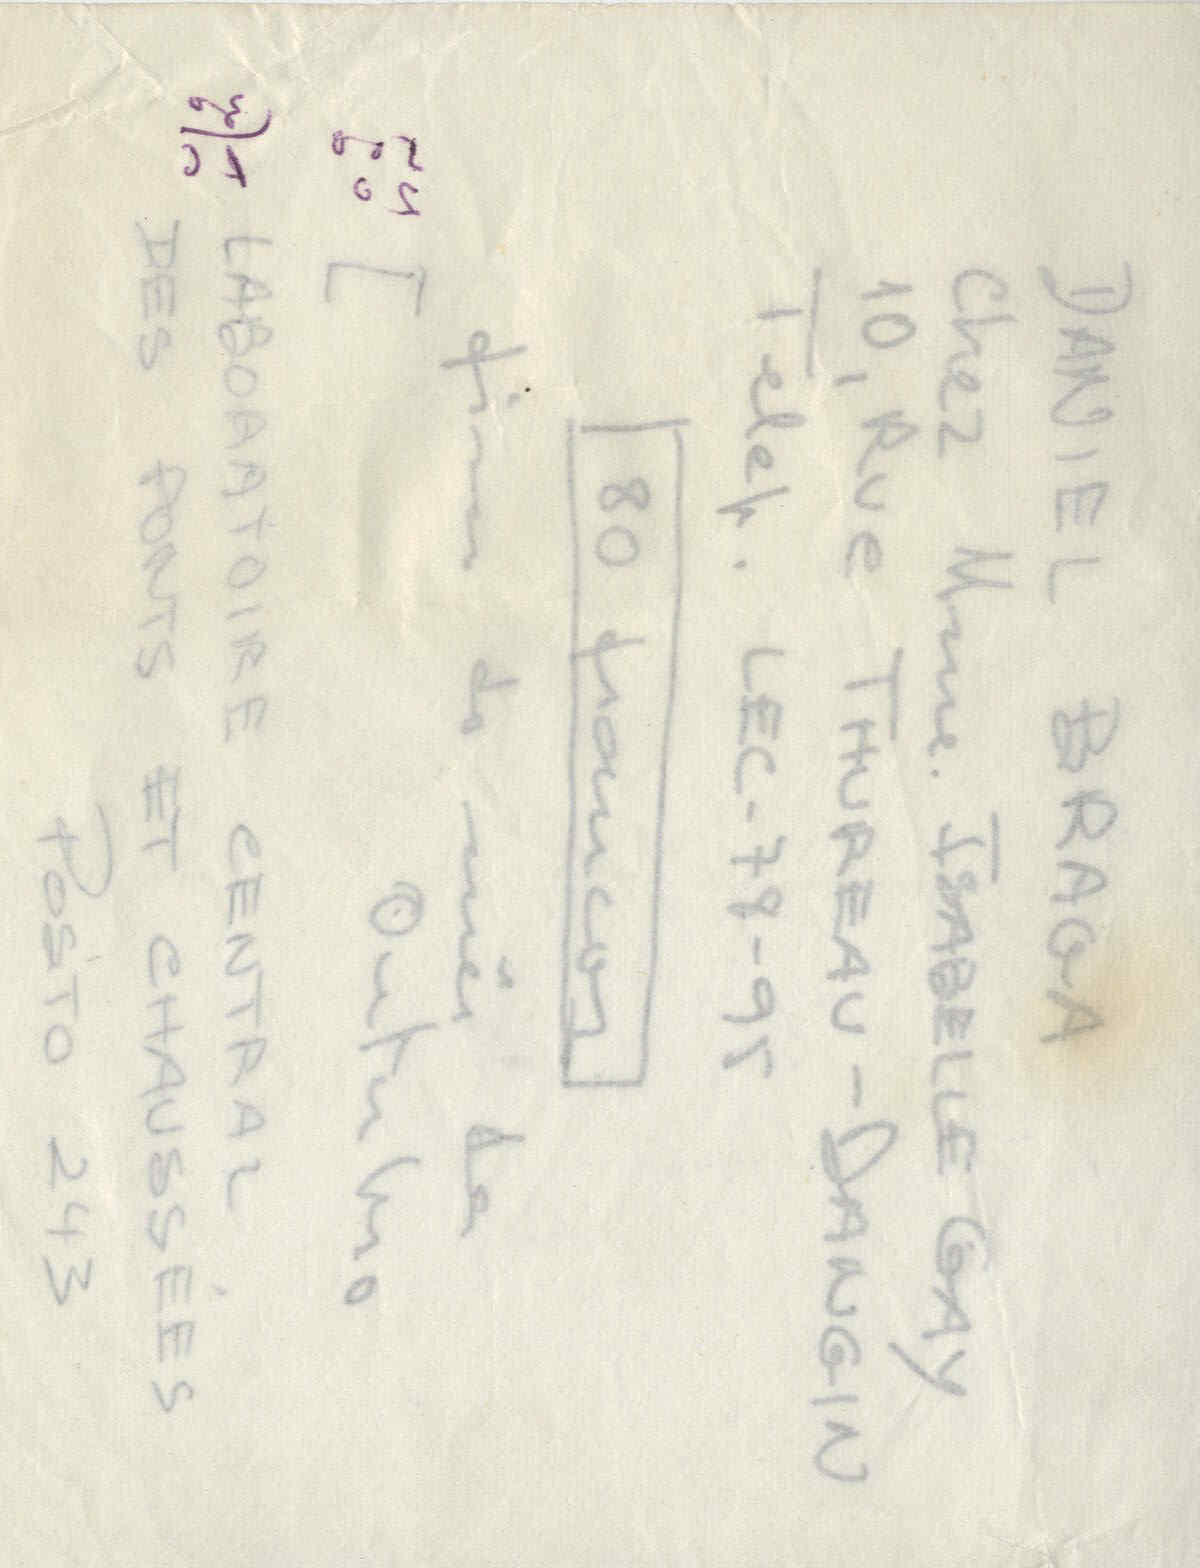 DANIEL BRAGA
Chez Mme. ISABELLE GAY
10, Rue THUREAU-DANGIN
Telef. LEC-78-95
80 francos
fins do mês de
Outubro
LABORATOIRE CENTRAL
DES PONTS ET CHAUSSÉES
POSTO 243